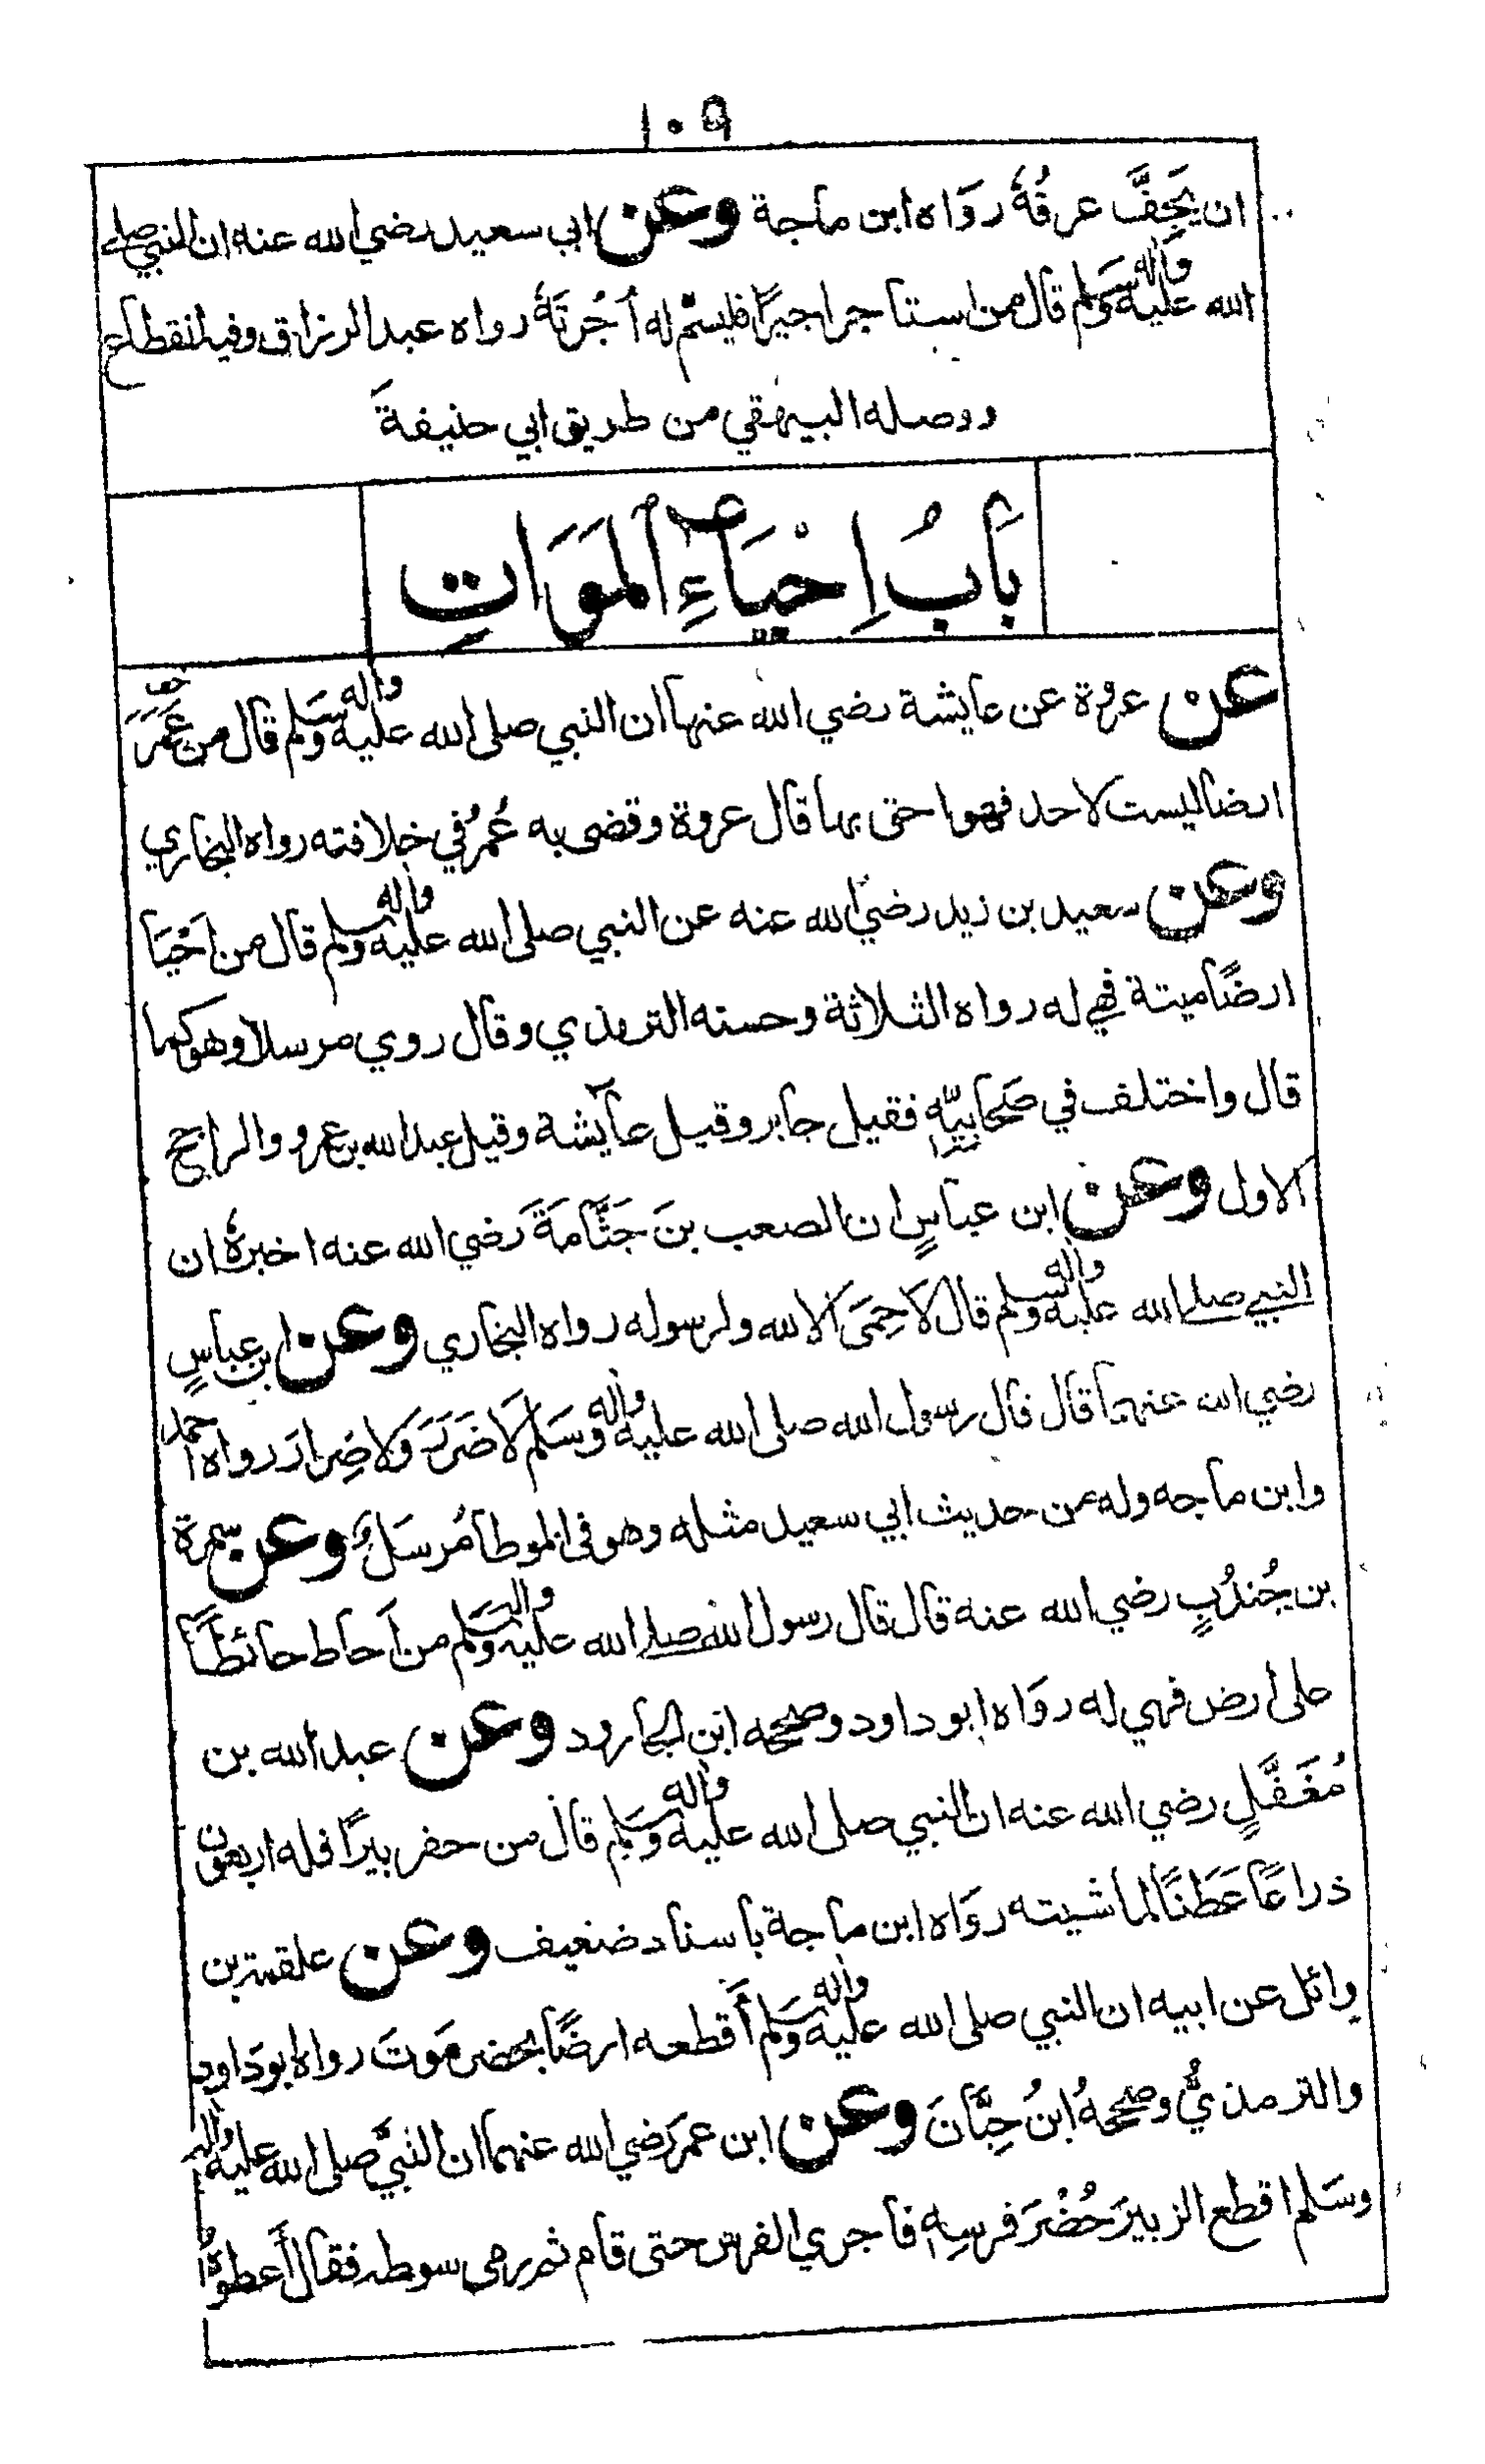 ١٠٩
ان يَجِفَّ عرقُهُ روَاه ابن ماجة وعن ابي سعيد رضي الله عنه ان النبي صلى
الله عليه وآله وسلم قال من استاجر اجيرًا فليسم له أُجُرتَهُ رواه عبد الرزاق وفيه انقطاع
ووصله البيهقي من طريق ابي حنيفةَ
بَابُ اِحْيَاءِ المَوَاتِ
عن عروة عن عايشة رضي الله عنها ان النبي صلى الله عليه وآله وسلم قال من عَمَرَ
ارضا ليست لاحد فهو احق بها قال عروة وقضى به عُمَرُ في خلافته رواه البخاري
وعن سعيد بن زيد رضي الله عنه عن النبي صلى الله عليه وآله وسلم قال من اَحْيَا
ارضًا ميتة فهي له رواه الثلاثة وحسنه الترمذي وقال روي مرسلا وهو كما
قال واختلف في صَحَابِيِّهِ فقيل جابر وقيل عآيشة وقيل عبد الله بن عمرو والراجح
الاول وعن ابن عباسٍ ان الصعب بنَ جَثَّامَةَ رَضي الله عنه اخبرهُ ان
النبي صلى الله عليه وآله وسلم قال لا حِمَى الا لله ولرسوله رواه البخاري وعن ابن عباسٍ
رضي الله عنهما قال قال رسول الله صلى الله عليه وآله وسَلم لَا ضَرَرَ وَلا ضِرارَ رواه احمد
وابن ماجه وله من حديث ابي سعيد مثله وهو في الموطا مُرسَلٌ وعن سمرة
بن جُندُبٍ رضي الله عنه قال قال رسول الله صلى الله عليه وآله وسلم من اَحاط حائطًا
على ارض فهي له روَاه ابو داود وصححه ابن الجارود وعن عبد الله بن
مُغَفَّلٍ رضي الله عنه ان النبي صلى الله عليه وآله وسلم قال من حفر بيرًا فله اربعون
ذراعًا عَطَنًا لماشيته روَاه ابن ماجة باسناد ضعيف وعن علقمة بن
وائل عن ابيه ان النبي صلى الله عليه وآله وسلم أَقطعه ارضًا بحضرمَوتَ رواه ابو داود
والترمذيُّ وصححهُ ابنُ حِبَّانَ وعن ابن عمر رَضي الله عنهما ان النبيَّ صلى الله عليه وآله
وسَلم اقطع الزبيرَ حُضْرَ فرسِهِ فاجري الفرس حتى قام ثم رمى سوطه فقال أَعطوهُ